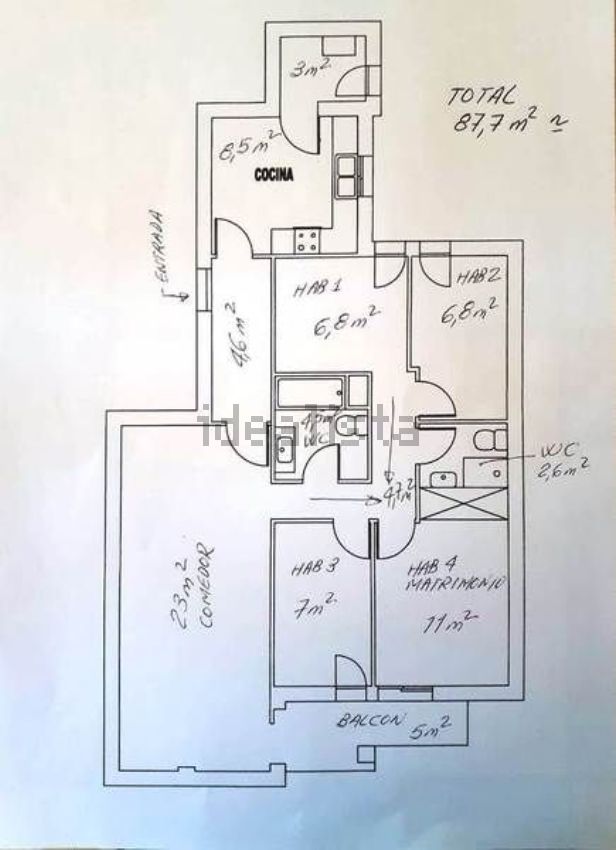 3 m²
TOTAL
87,7 m² ~
8,5 m²
COCINA
ENTRADA
HAB 1
6,8 m²
HAB 2
6,8 m²
4,6 m²
idealista
WC
WC
2,6 m²
4,7 m²
23 m²
COMEDOR
HAB 3
7 m²
HAB 4
MATRIMONIO
11 m²
BALCON
5 m²